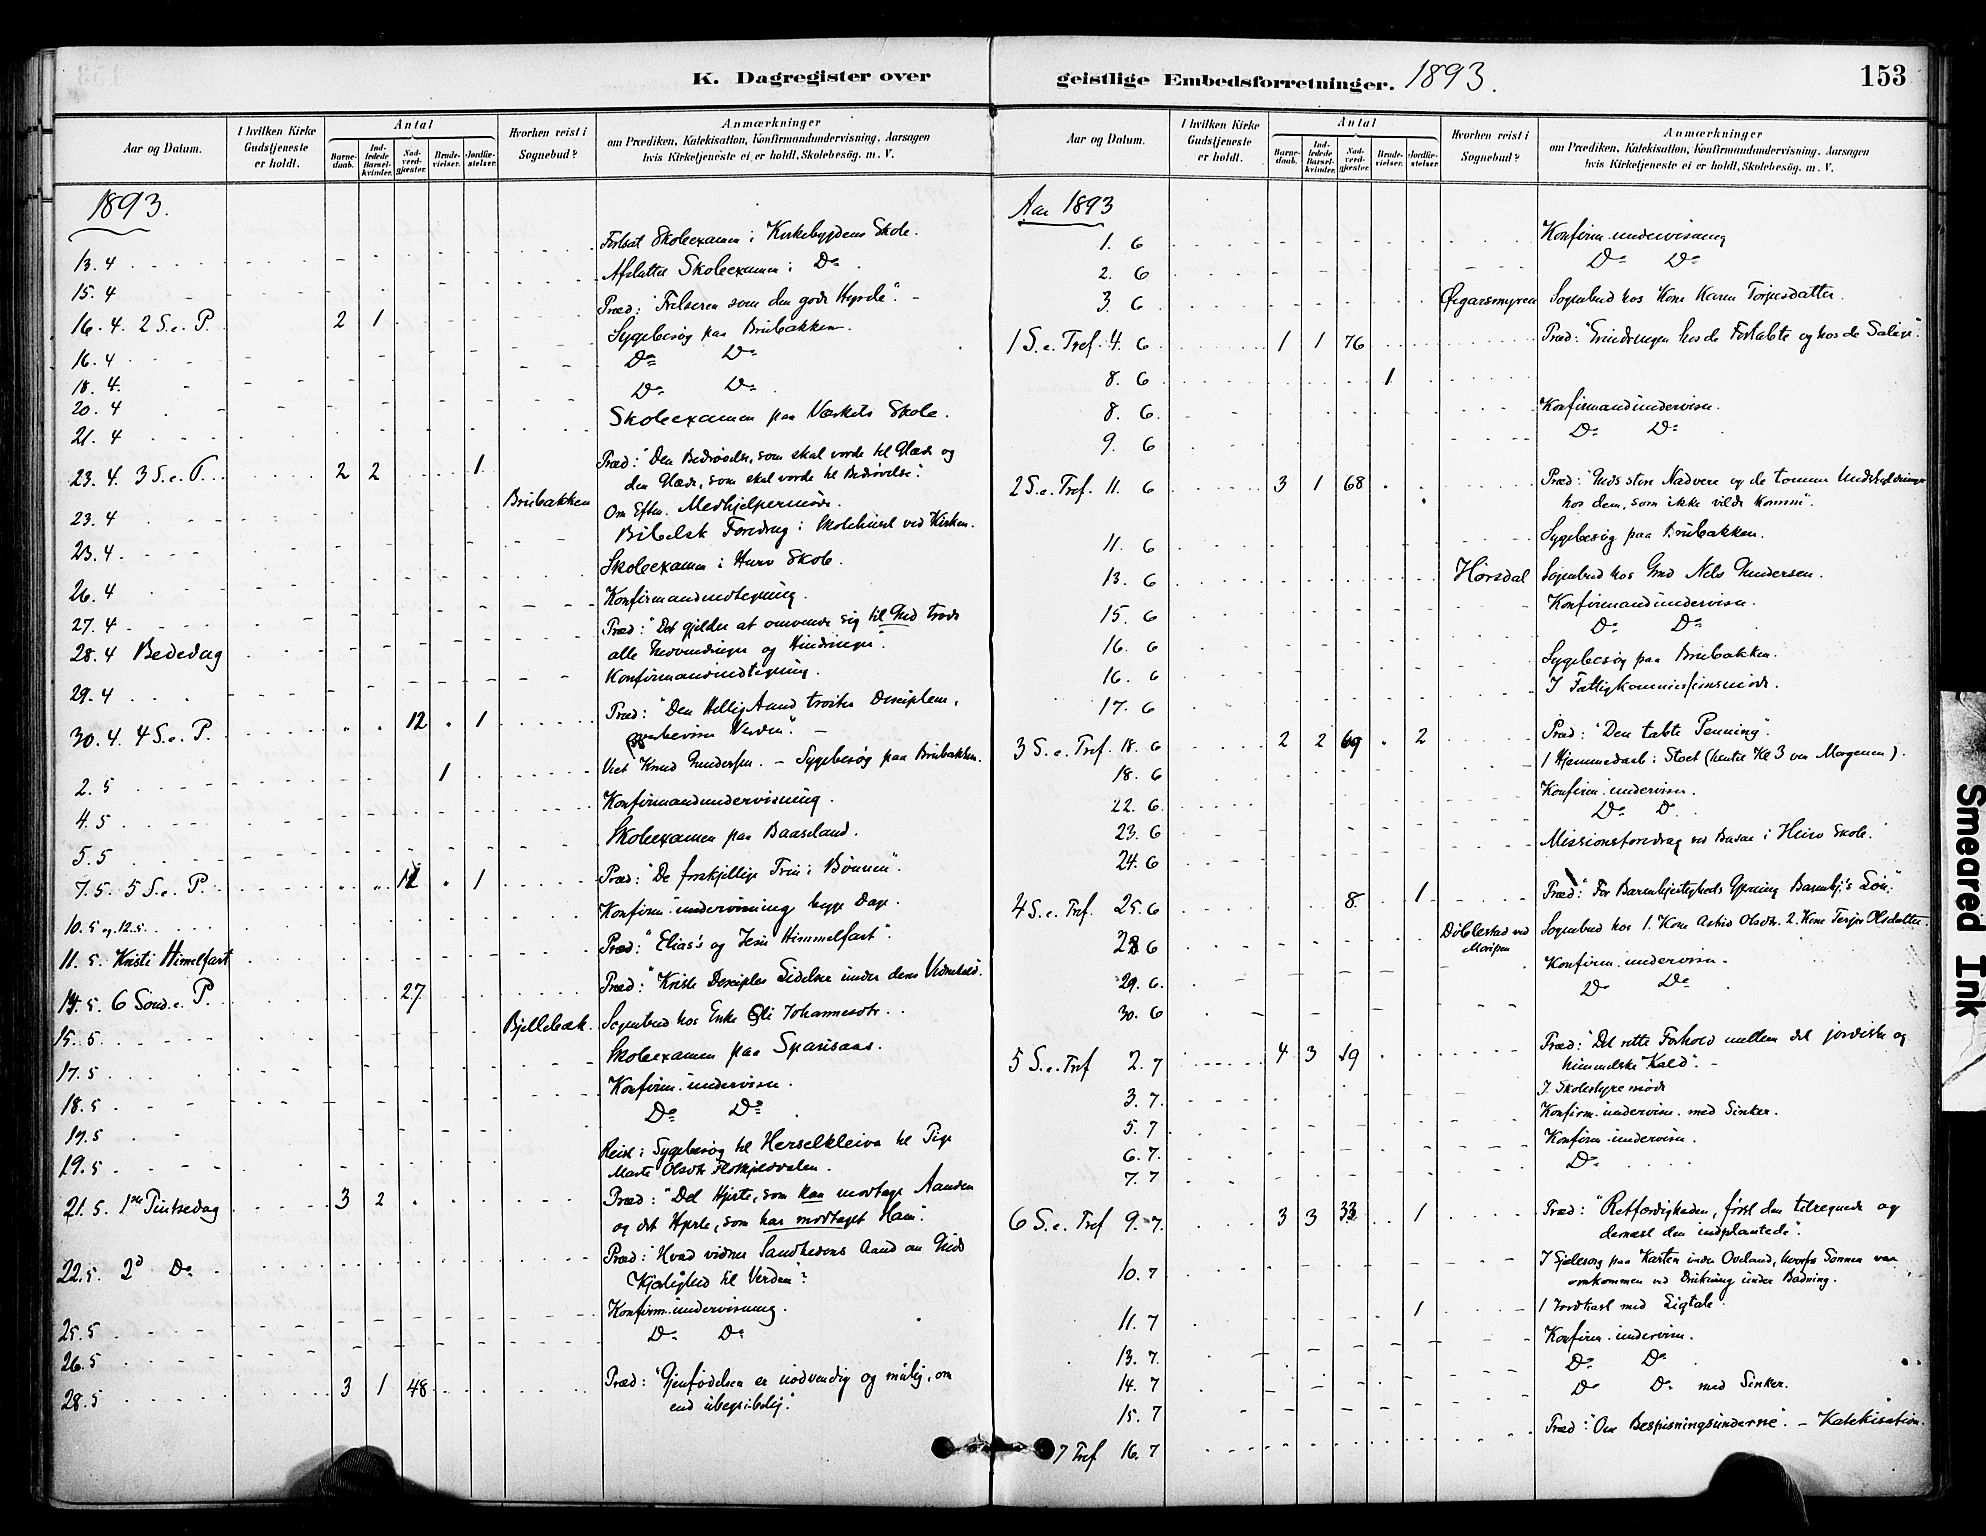 K. Dagregister over
Aar og Datum.
I hvilken Kirke Gudstjeneste er holdt.
Antal
Barnedaab.
Indledede Barselkvinder.
Nadverdgjæster.
Brudevielser.
Jordfæstelser.
Hvorhen reist i Sognebud?
Anmærkninger
om Prædiken, Katekisation, Konfirmandundervisning, Aarsagen
hvis Kirketjeneste ei er holdt, Skolebesög. m. V.
1893.
13. 4 Fortsat Skoleexamen i Kirkebygdens Skole.
15. 4 Afsluttet Skoleexamen i Do
16. 4. 2 S. e. P. 2 1 Præd: "Frelseren som den gode Hyrde".
16. 4 Sygebesøg paa Brubakken.
18. 4. Do Do
20. 4 Do Do
21. 4 Skoleexamen paa Værkets Skole.
23. 4. 3 S. e. P. 2 2 1 Præd: "Den Bedrøvelse, som skal vorde til Glæde og
den Glæde, som skal vorde til Bedrøvelse".
23. 4 Brubakken Om Efter. Medhjelpermøde.
23. 4. Bibelsk Foredrag i Skolehuset ved Kirken.
26. 4 Skoleexamen i Skole.
27. 4 Konfirmandindtegning.
28. 4 Bededag Præd: "Det gjelder at omvende sig til Gud trods
alle Indvendinger og Hindringer".
29. 4 Konfirmandindtegning.
30. 4. 4 S. e. P. 12 1 Præd: "Den Hellig Aand trøster Disciplene,
overbeviser Verden".
2. 5 1 Viet Knud Gundersen. - Sygebesøg paa Brubakken.
4. 5 Konfirmandundervisning.
5. 5 Skoleexamen paa Baaseland.
7. 5. 5 S. e. P. 1 Præd: "De forskjellige Trin i Bønnen".
10. 5 og 12.5. Konfirm. undervisning begge Dage.
11. 5. Kristi Himelfart Præd: "Elias's og Jesu Himmelfart".
14. 5. 6 Sønd. e. P. 27 Præd: "Kristi Disciples Lidelser under deres Vidnesbyrd.
15. 5 Bjellebæk. Sognebud hos Enke Johannesdtr.
17. 5 Skoleexamen paa
18. 5 Konfirm. undervisn.
19. 5 Do Do
19. 5 Reist i Sygebesøg til Herselkleiva til Pige
Marte Olsdtr
21. 5. 1ste Pintsedag 3 2 Præd: "Det Hjerte, som kan modtage Aanden
og det Hjerte, som har modtaget Ham".
22. 5. 2d Do Præd: "Hvad vidner Sandhedens Aand om Guds
Kjærlighed til Verden"?
25. 5 Konfirm. undervisning.
26. 5 Do Do
28. 5 3 1 48 Præd: "Gjenfødelsen er nødvendig og mulig, om
end ubegribelig".
geistlige Embedsforretninger. 1893.
153
Aar og Datum.
I hvilken Kirke Gudstjeneste er holdt.
Antal
Barnedaab.
Indledede Barselkvinder.
Nadverdgjæster.
Brudevielser.
Jordfæstelser.
Hvorhen reist i Sognebud?
Anmærkninger
om Prædiken, Katekisation, Konfirmandundervisning, Aarsagen
hvis Kirketjeneste ei er holdt, Skolebesög. m. V.
Aar 1893
1. 6 Konfirm. undervisning
2. 6 Do Do
3. 6 Øygarsmyren Sognebud hos Kone Karen Torjesdatter.
1 S. e. Tref. 4. 6 1 1 76 Præd: "Erindringen hos de Fortabte og hos de Salige".
8. 6 1
8. 6. Konfirmandundervisn.
9. 6 Do Do
2 S. e. Tref. 11. 6 3 1 68 Præd: "Guds store Nadvere og de tomme Undskyldninger
hos dem, som ikke vilde komme".
11. 6 Sygebesøg paa Brubakken.
13. 6 Hørsdal Sognebud hos Gmd Nels Gundersen.
15. 6 Konfirmandundervisn.
16. 6 Do Do
16. 6 Sygebesøg paa Brubakken.
17. 6 I Fattigkommissionsmøde.
3 S. e. Tref. 18. 6 2 2 69 2 Præd: "Den tabte Penning".
18. 6 1 Hjemmedaab i Stoet (hentet Kl 3 om Morgenen).
22. 6. Konfirm. undervisn.
23. 6 Do D.
24. 6 Missionsforedrag ved Basar i Skole.
4 S. e. Tref. 25. 6 8 1 Præd: "For Barmhjertigheds Gjerning Barmhj's Løn".
28 6 Dølblestad ved Sognebud hos 1. Kone Astrid Olsdtr. 2. Kone Terjer Olsdatter
29. 6. Konfirm. undervisn.
30. 6 Do Do
5 S. e. Tref 2. 7 4 3 19 Præd: "Det rette Forhold mellem det jordiske og
himmelske Kald".
3. 7. I Skolestyremøde
5. 7 Konfirm. undervisn. med Sinker.
6. 7. Konfirm. undervisn.
7. 7 Do
6 S. e. Tref 9. 7. 3 3 33 1 Præd: "Retfærdigheden, først den tilregnede og
dernæst den indplantede".
10. 7 I Sjælesorg paa Karten under Oveland, hvorfra Sønnen var
omkommen ved Drukning under Badning.
11. 7 1 1 Jordkast med Ligtale.
13. 7. Konfirm. undervisn.
14. 7 Do Do
15. 7 Do Do med Sinker.
7 Tref 16. 7 Præd: "Om Bespisningsunderne". - Katekisation.
Smeared Ink